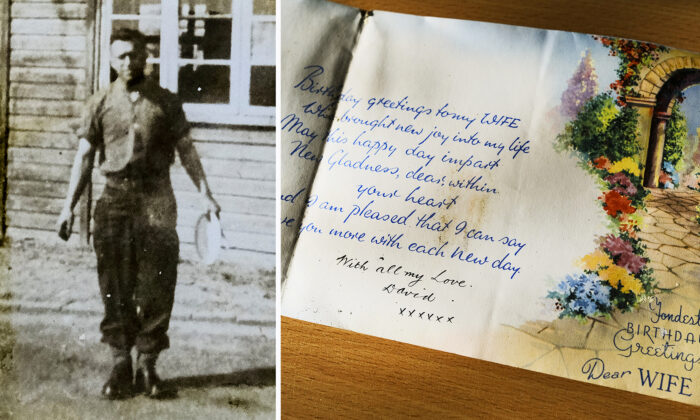 Birthday greetings to my WIFE
Who brought new joy into my life
May this happy day impart
New Gladness, dear, within
your heart
nd I am pleased that I can say
you more with each new day
With all my Love.
David
xxxxxx
Fondest
BIRTHDA
Greetings
Dear WIFE